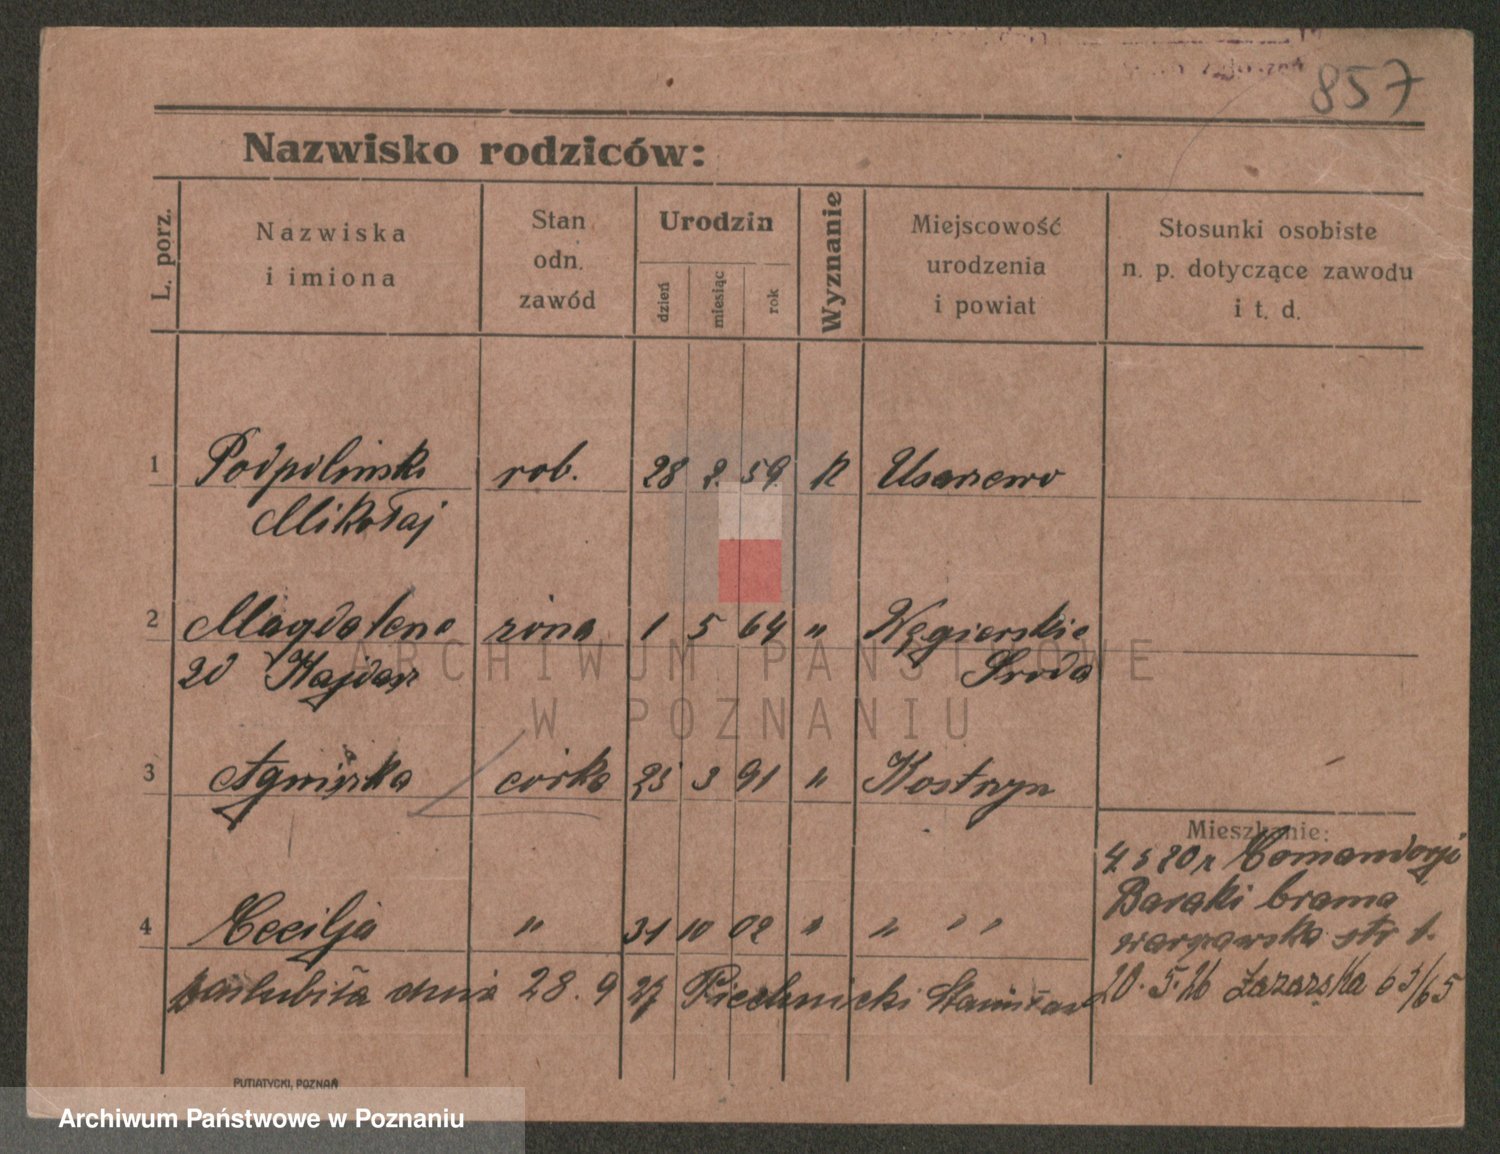 857
Nazwisko rodziców:
L. porz.
Nazwiska
i imiona
Stan
odn.
zawód
Urodzin
dzień
miesiąc
rok
Wyznanie
Miejscowość
urodzenia
i powiat
Stosunki osobiste
n. p. dotyczące zawodu
i t. d.
1 Podpoliński rob. 28 8. 59. R Usarzewo
Mikołaj
2 Magdalena żona 1 5 64 " Węgierskie
zd Hajdasz Środa
3 Agnieszka córka 25 3 91 " Kostrzyn
4 Cecilja " 31 10 02 " " " "
zaślubiła dnia 28. 9 27 Piechnicki Stanisław
Mieszkanie:
Komandorji
Baraki brama
warszawska str 1.
20. 5. 26 Łazarska 63/65
PUTIATYCKI, POZNAŃ
ARCHIWUM PAŃSTWOWE
W POZNANIU
Archiwum Państwowe w Poznaniu